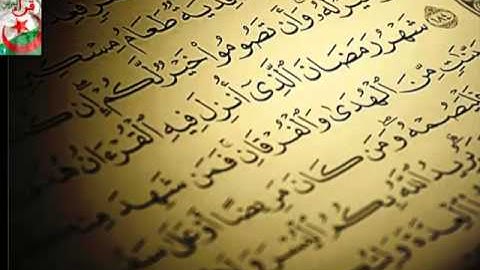 فِدْيَةٌ طَعَامُ مِسْكِينٍ
لَّهُ وَأَن تَصُومُوا خَيْرٌ لَّكُمْ إِن
١٨٤ شَهْرُ رَمَضَانَ الَّذِي أُنزِلَ فِيهِ الْقُرْءَانُ
مِّنَ الْهُدَىٰ وَالْفُرْقَانِ فَمَن شَهِدَ
فَلْيَصُمْهُ وَمَن كَانَ مَرِيضًا أَوْ عَلَىٰ
يُرِيدُ اللَّهُ بِكُمُ الْيُسْرَ
الْعِدَّةَ